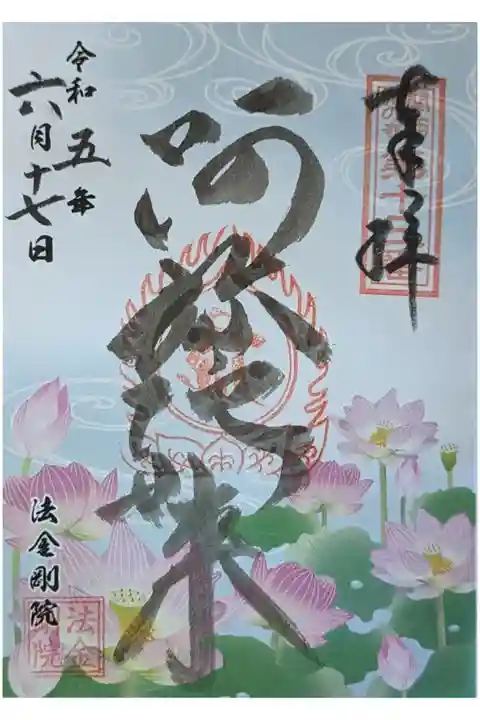 奉拝
阿弥陀如来
令和五年
六月十七日
法金剛院
法金
剛院